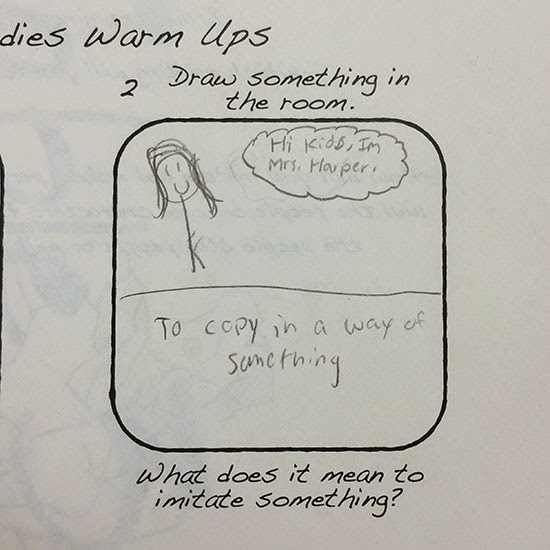 dies Warm Ups
2 Draw something in
the room.
Hi Kids, Im
Mrs. Harper.
To copy in a way of
something
What does it mean to
imitate something?